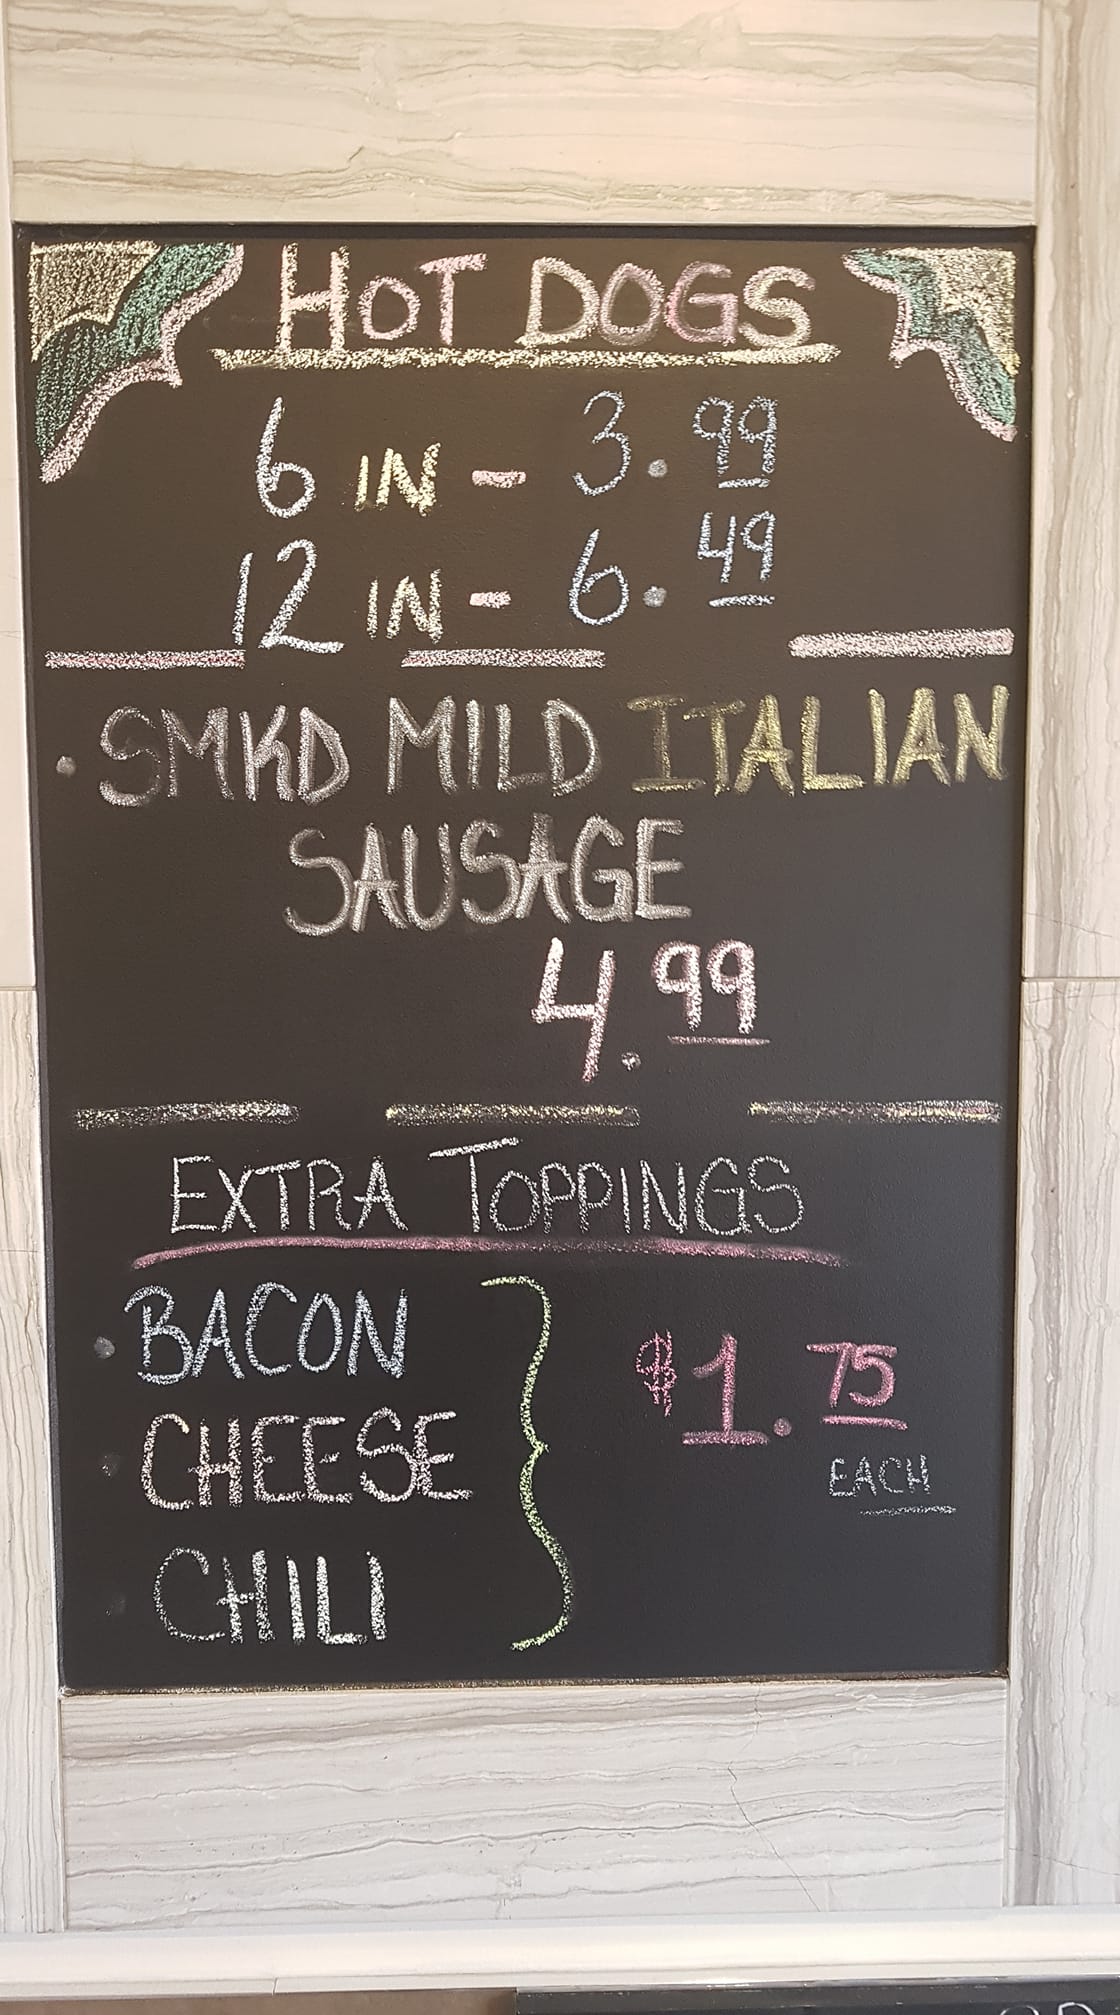 HOT DOGS
6 IN - 3.99
12 IN - 6.49
• SMKD MILD ITALIAN
SAUSAGE
4.99
EXTRA TOPPINGS
• BACON
• CHEESE
• CHILI
$1.75
EACH